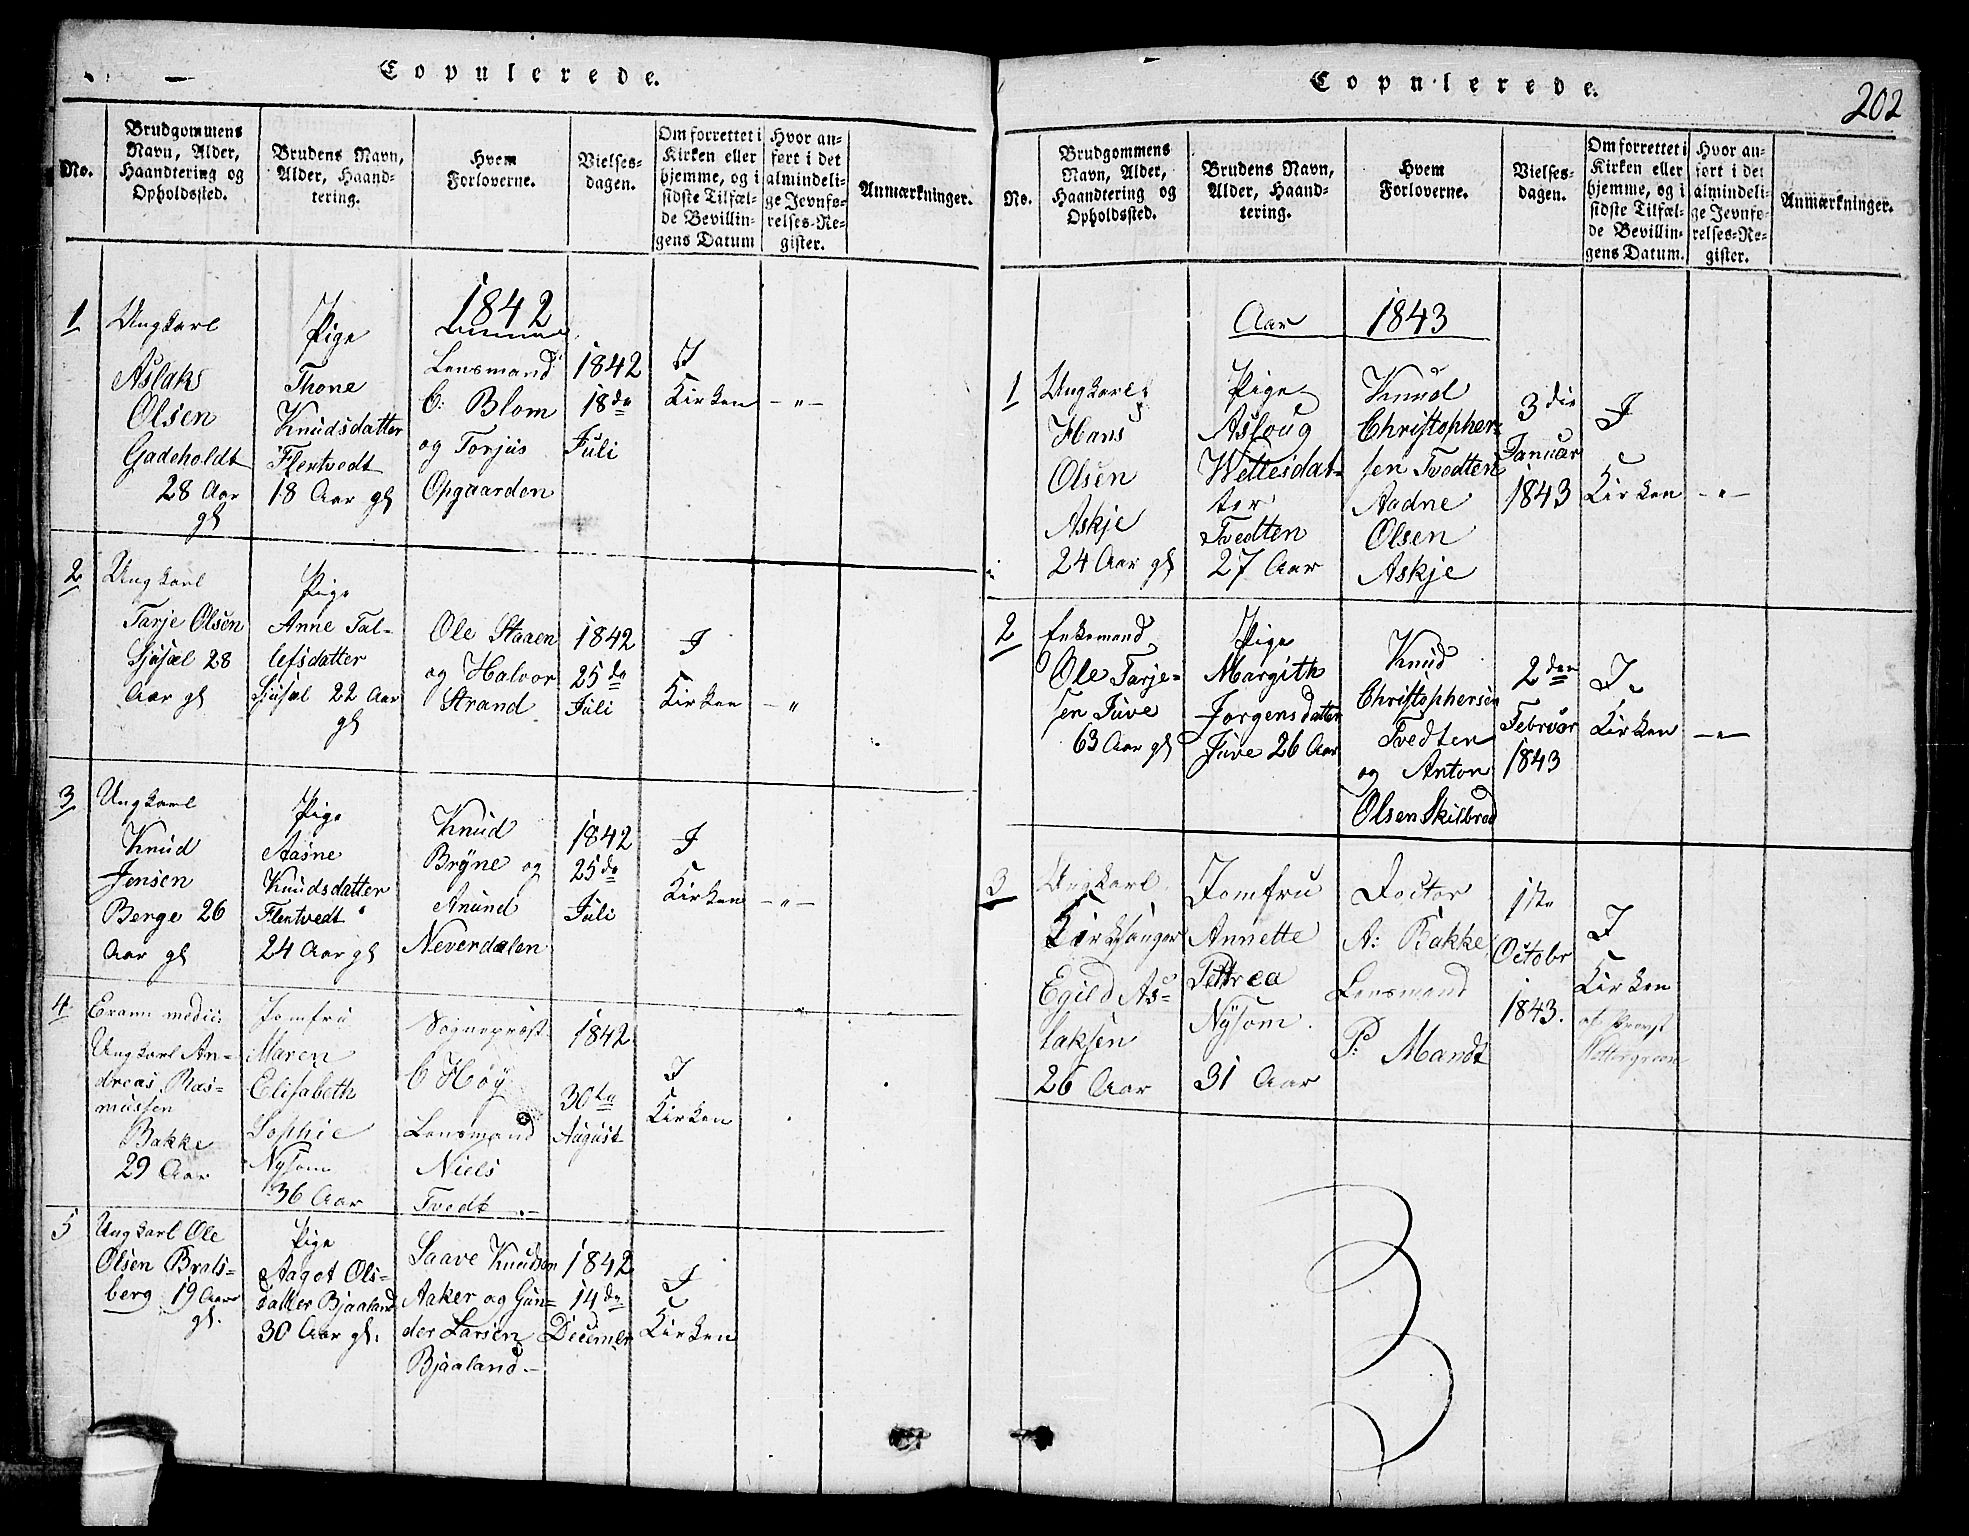 Copulerede.
No.
Brudgommens
Navn, Alder,
Haandtering og
Opholdssted.
Brudens Navn,
Alder, Haand-
tering.
Hvem
Forloverne.
Vielses-
dagen.
Om forrettet i
Kirken eller
hjemme, og i
sidste Tilfæl-
de Bevillin-
gens Datum
Hvor an-
ført i det
almindeli-
ge Jevnfø-
relses-Re-
gister.
Anmærkninger.
1842
1
Ungkarl
Aslak
Olsen
Gadeholdt
28 Aar
gl
Pige
Thone
Knudsdatter
Flentvedt
18 Aar gl
Lensmand
C: Blom
og Torjus
Opgaarden
1842
18de
Juli
I
Kirken
-"-
2
Ungkarl
Tarje Olsen
28
Aar gl
Pige
Anne Tal-
lefsdatter
22 Aar
gl
Ole Staaen
og Halvor
Strand
1842
25de
Juli
I
Kirken
-"
3
Ungkarl
Knud
Jensen
Berge 26
Aar gl
Pige
Aasne
Knudsdatter
Flentvedt
24 Aar gl
Knud
Bryne og
Anund
Neverdalen
1842
25de
Juli
I
Kirken
-"-
4
Exam: medic:
Ungkarl An-
dreas Ras-
mussen
Bakke
29 Aar
Jomfru
Maren
Elisabeth
Sophie
Nysom
36 Aar
Sognepræst
C Høy
Lensmand
Niels
Tvedt.-
1842
30te
August
I
Kirken
"
5
Ungkarl Ole
Olsen Brats-
berg 19 Aar
gl.
Pige
Aagot Ols-
datter Bjaaland
30 Aar gl.
Saave Knudson
Aaker og Gun-
der Larsen
Bjaaland-
1842
14de
Decemer
I
Kirken
Copulerede.
202
No.
Brudgommens
Navn, Alder,
Haandtering og
Opholdssted.
Brudens Navn,
Alder, Haand-
tering.
Hvem
Forloverne.
Vielses-
dagen.
Om forrettet i
Kirken eller
hjemme, og i
sidste Tilfæl-
de Bevillin-
gens Datum.
Hvor an-
ført i det
almindeli-
ge Jevnfø-
relses-Re-
gister.
Anmærkninger.
Aar 1843
1
Ungkarl
Hans
Olsen
Askje
24 Aar gl
Pige
Asloug
Wettesdat-
ter
Tvedten
27 Aar
Knud
Christopher-
sen Tvedten
Aadne
Olsen
Askje
3die
Januar
1843
I
Kirken
-"-
2
Enkemand
Ole Tarje-
sen Juve
63 Aar gl
Pige
Margith
Jorgensdatter
Juve 26 Aar
Knud
Christophersen
Tvedten
og Anton
Olsen Skilbred
2den
Februar
1843
I
Kirken
-"-
3
Ungkarl
Kirksanger
Egild As-
laksen
26 Aar
Jomfru
Annette
Pettrea
Nysom.
31 Aar
Doctor
A: Bakke
Lensmand
P: Mandt
1ste
Octobr
1843.
I
Kirken
af Provst